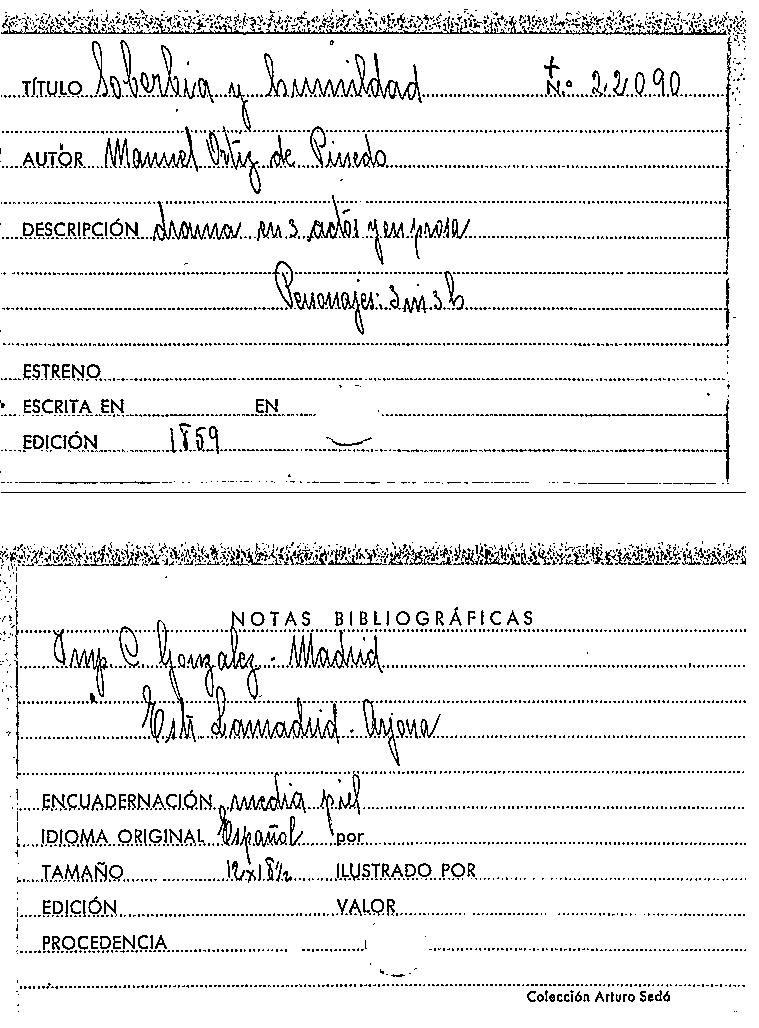 TÍTULO Soberbia y humildad N.º 22090
AUTOR Manuel Ortiz de Pinedo
DESCRIPCIÓN drama en 3 actos y en prosa
Personajes: 3 m 3 h
ESTRENO
ESCRITA EN EN
EDICIÓN 1859
NOTAS BIBLIOGRÁFICAS
Imp C. Gonzalez - Madrid
Estr. Lamadrid - Arjona
ENCUADERNACIÓN media piel
IDIOMA ORIGINAL Español por
TAMAÑO 12x18½ ILUSTRADO POR
EDICIÓN VALOR
PROCEDENCIA
Colección Arturo Sedó